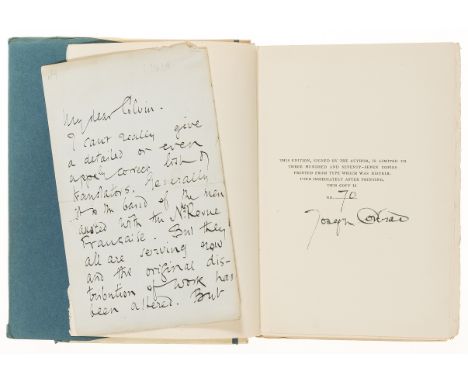 My dear Colvin.
I can't really give
a detailed or even
correct list of
translators. Generally
it is the band of the men
with the Nlle Revue
Française. But they
all are serving now
and the original dis-
tribution of work has
been altered. But
THIS EDITION, SIGNED BY THE AUTHOR, IS LIMITED TO
THREE HUNDRED AND SEVENTY-SEVEN COPIES
PRINTED FROM TYPE WHICH WAS DISTRIB-
UTED IMMEDIATELY AFTER PRINTING.
THIS COPY IS
NO. 70
Joseph Conrad